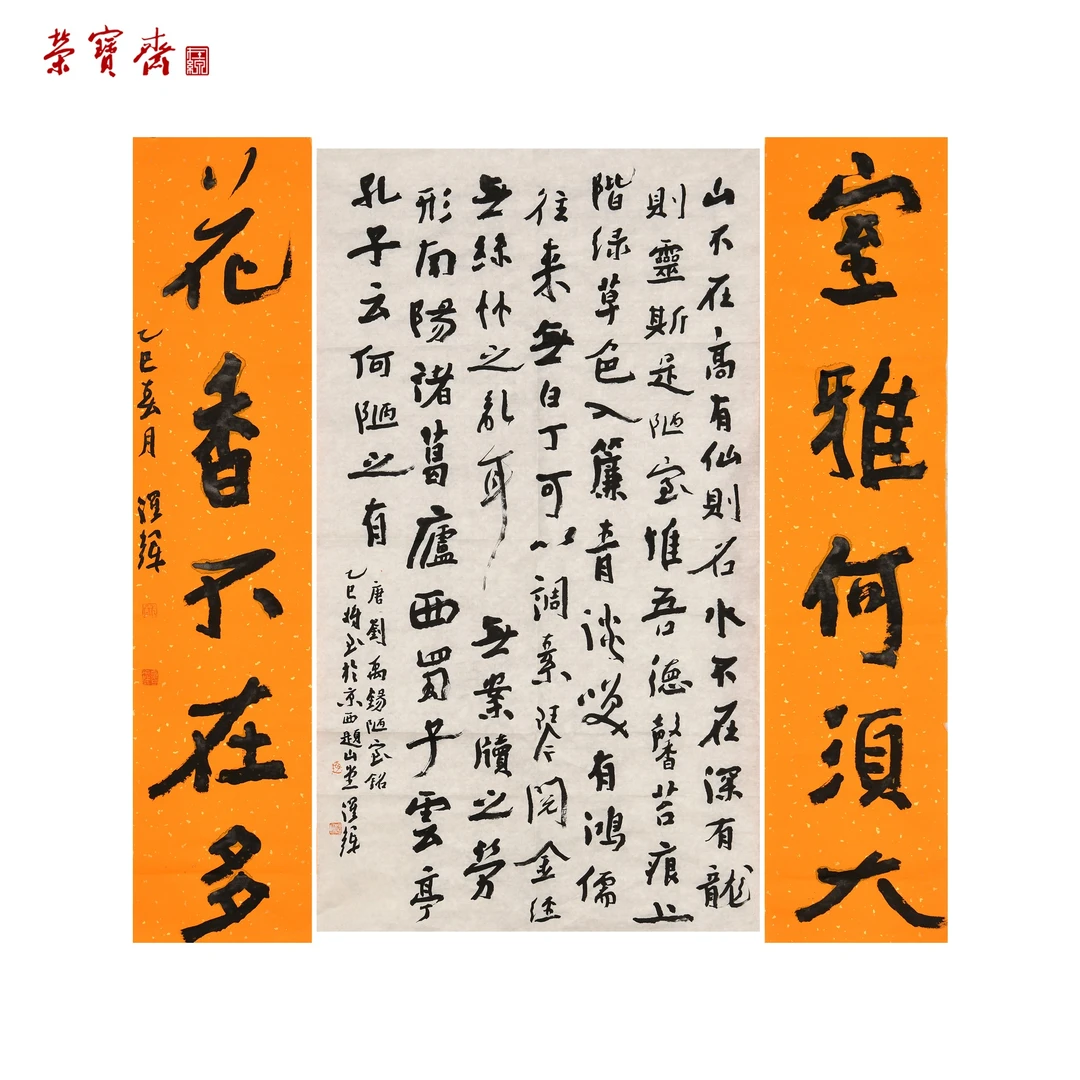 榮寶齋
室雅何須大
山不在高有仙則名水不在深有龍
則靈斯是陋室惟吾德馨苔痕上
階緑草色入簾青談笑有鴻儒
往来無白丁可以調素琴閱金經
無絲竹之亂耳無案牘之勞
形南陽諸葛廬西蜀子雲亭
孔子云何陋之有
唐劉禹錫陋室銘
乙巳 於京西題山堂
花香不在多
乙巳春月